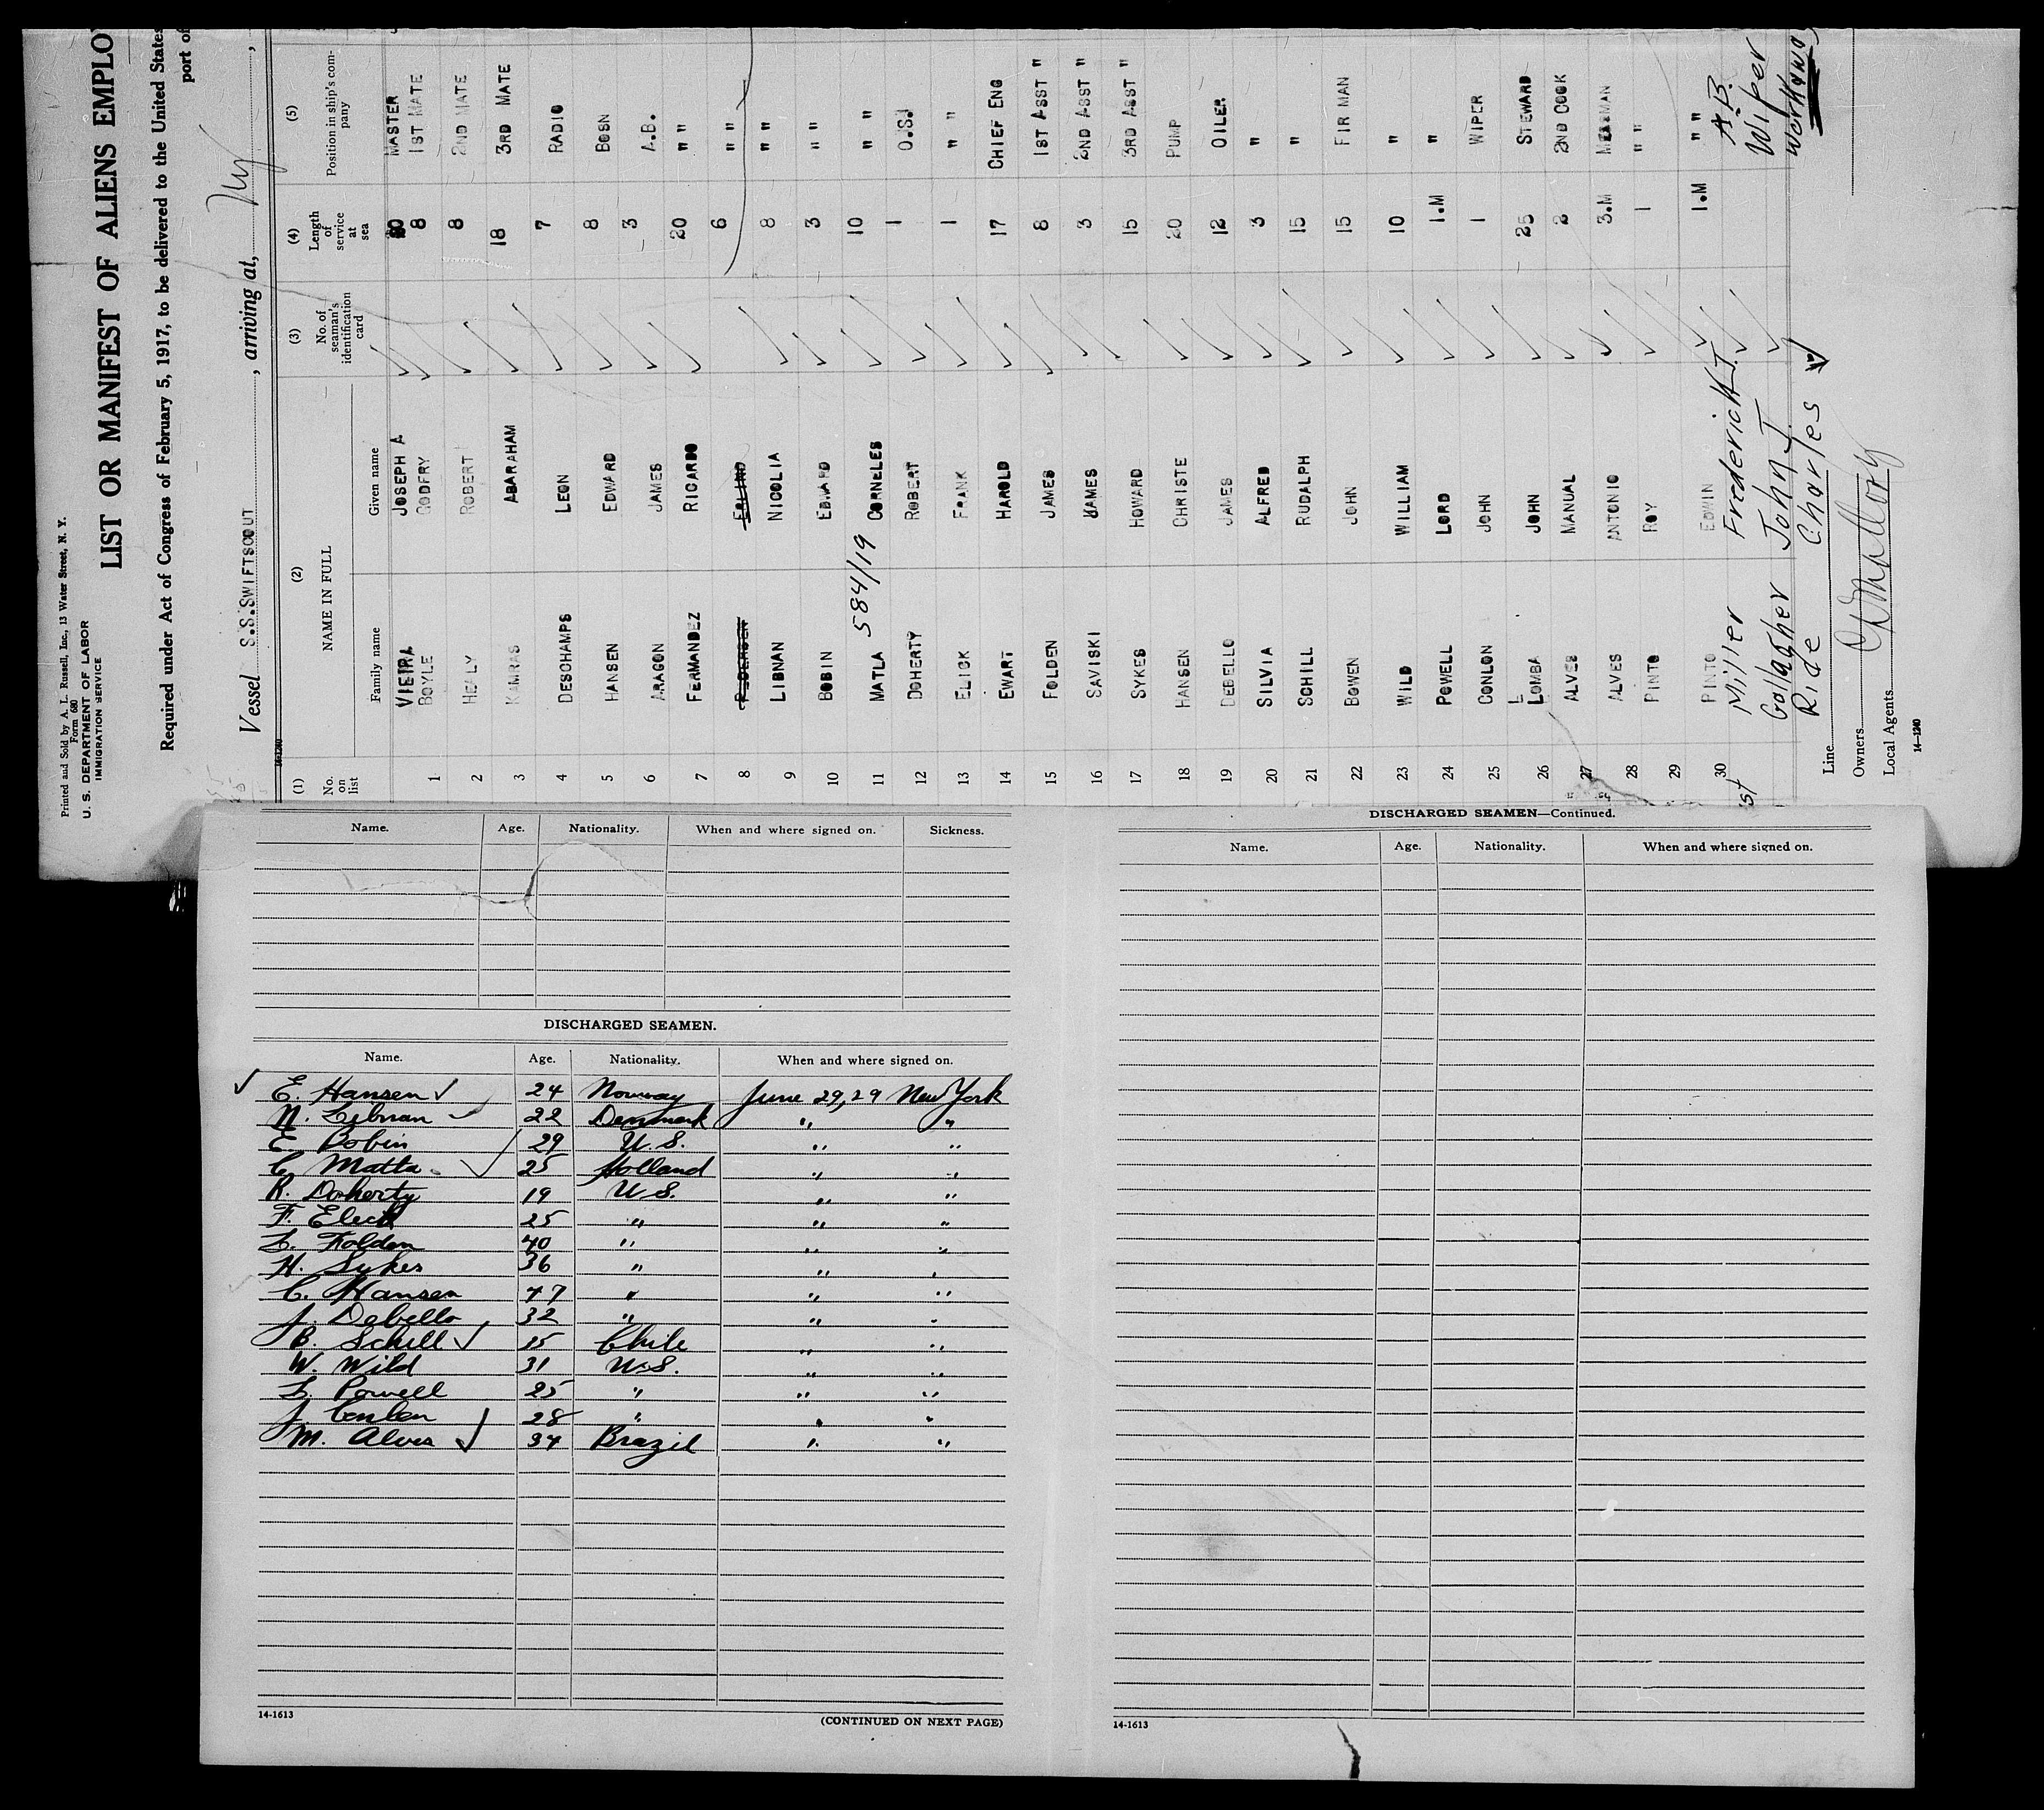 Printed and Sold by A. L. Russell, Inc., 13 Water Street, N. Y.
Form 680
U. S. DEPARTMENT OF LABOR
IMMIGRATION SERVICE
LIST OR MANIFEST OF ALIENS EMPLO
Required under Act of Congress of February 5, 1917, to be delivered to the United States
port of
Vessel S.S.SWIFTSCOUT , arriving at, NY ,
(1) (2) (3) (4) (5)
No. on list NAME IN FULL No. of seaman's identification card Length of service at sea Position in ship's company
Family name Given name
VIEIRA JOSEPH A 20 MASTER
1 BOYLE GODFRY 8 1ST MATE
2 HEALY ROBERT 8 2ND MATE
3 KAMRAS ABARAHAM 18 3RD MATE
4 DESCHAMPS LEON 7 RADIO
5 HANSEN EDWARD 8 BOSN
6 ARAGON JAMES 3 A.B.
7 FERNANDEZ RICARDO 20 " "
8 PEDERSEN ERLIND 6 " "
9 LIBNAN NICOLIA 8 " "
10 BOBIN EDWARD 3 " "
11 MATLA 584/19 CORNELES 10 " "
12 DOHERTY ROBERT 1 O.S.
13 ELICK FRANK 1 " "
14 EWART HAROLD 17 CHIEF ENG
15 FOLDEN JAMES 8 1ST ASST "
16 SAVISKI KAMES 3 2ND ASST "
17 SYKES HOWARD 15 3RD ASST "
18 HANSEN CHRISTE 20 PUMP
19 DEBELLO JAMES 12 OILER
20 SILVIA ALFRED 3 "
21 SCHILL RUDALPH 15 "
22 BOWEN JOHN 15 FIR MAN
23 WILD WILLIAM 10 "
24 POWELL LORD 1.M "
25 CONLON JOHN 1 WIPER
26 LOMBA JOHN 25 STEWARD
27 ALVES MANUAL 2 2ND COOK
28 ALVES ANTONIO 3.M MESSMAN
29 PINTO ROY 1 " "
30 PINTO EDWIN 1.M " "
Miller Frederick J. A.B.
Gallagher John J. Wiper
Ride Charles Workaway
Line
Owners
Local Agents
14-1240
Name. Age. Nationality. When and where signed on. Sickness.
DISCHARGED SEAMEN.
Name. Age. Nationality. When and where signed on.
E. Hansen 24 Norway June 29, 29 New York
N. Libnan 22 Denmark " "
E. Bobin 29 U.S. " "
C. Matla 25 Holland " "
R. Doherty 19 U.S. " "
F. Elick 25 " " "
L. Folden 40 " " "
H. Sykes 36 " " "
C. Hansen 47 " " "
J. Debello 32 " " "
R. Schill 25 Chile " "
W. Wild 31 U.S. " "
L. Powell 25 " " "
J. Conlon 28 " " "
M. Alves 34 Brazil " "
14-1613
(CONTINUED ON NEXT PAGE)
DISCHARGED SEAMEN—Continued.
Name. Age. Nationality. When and where signed on.
14-1613